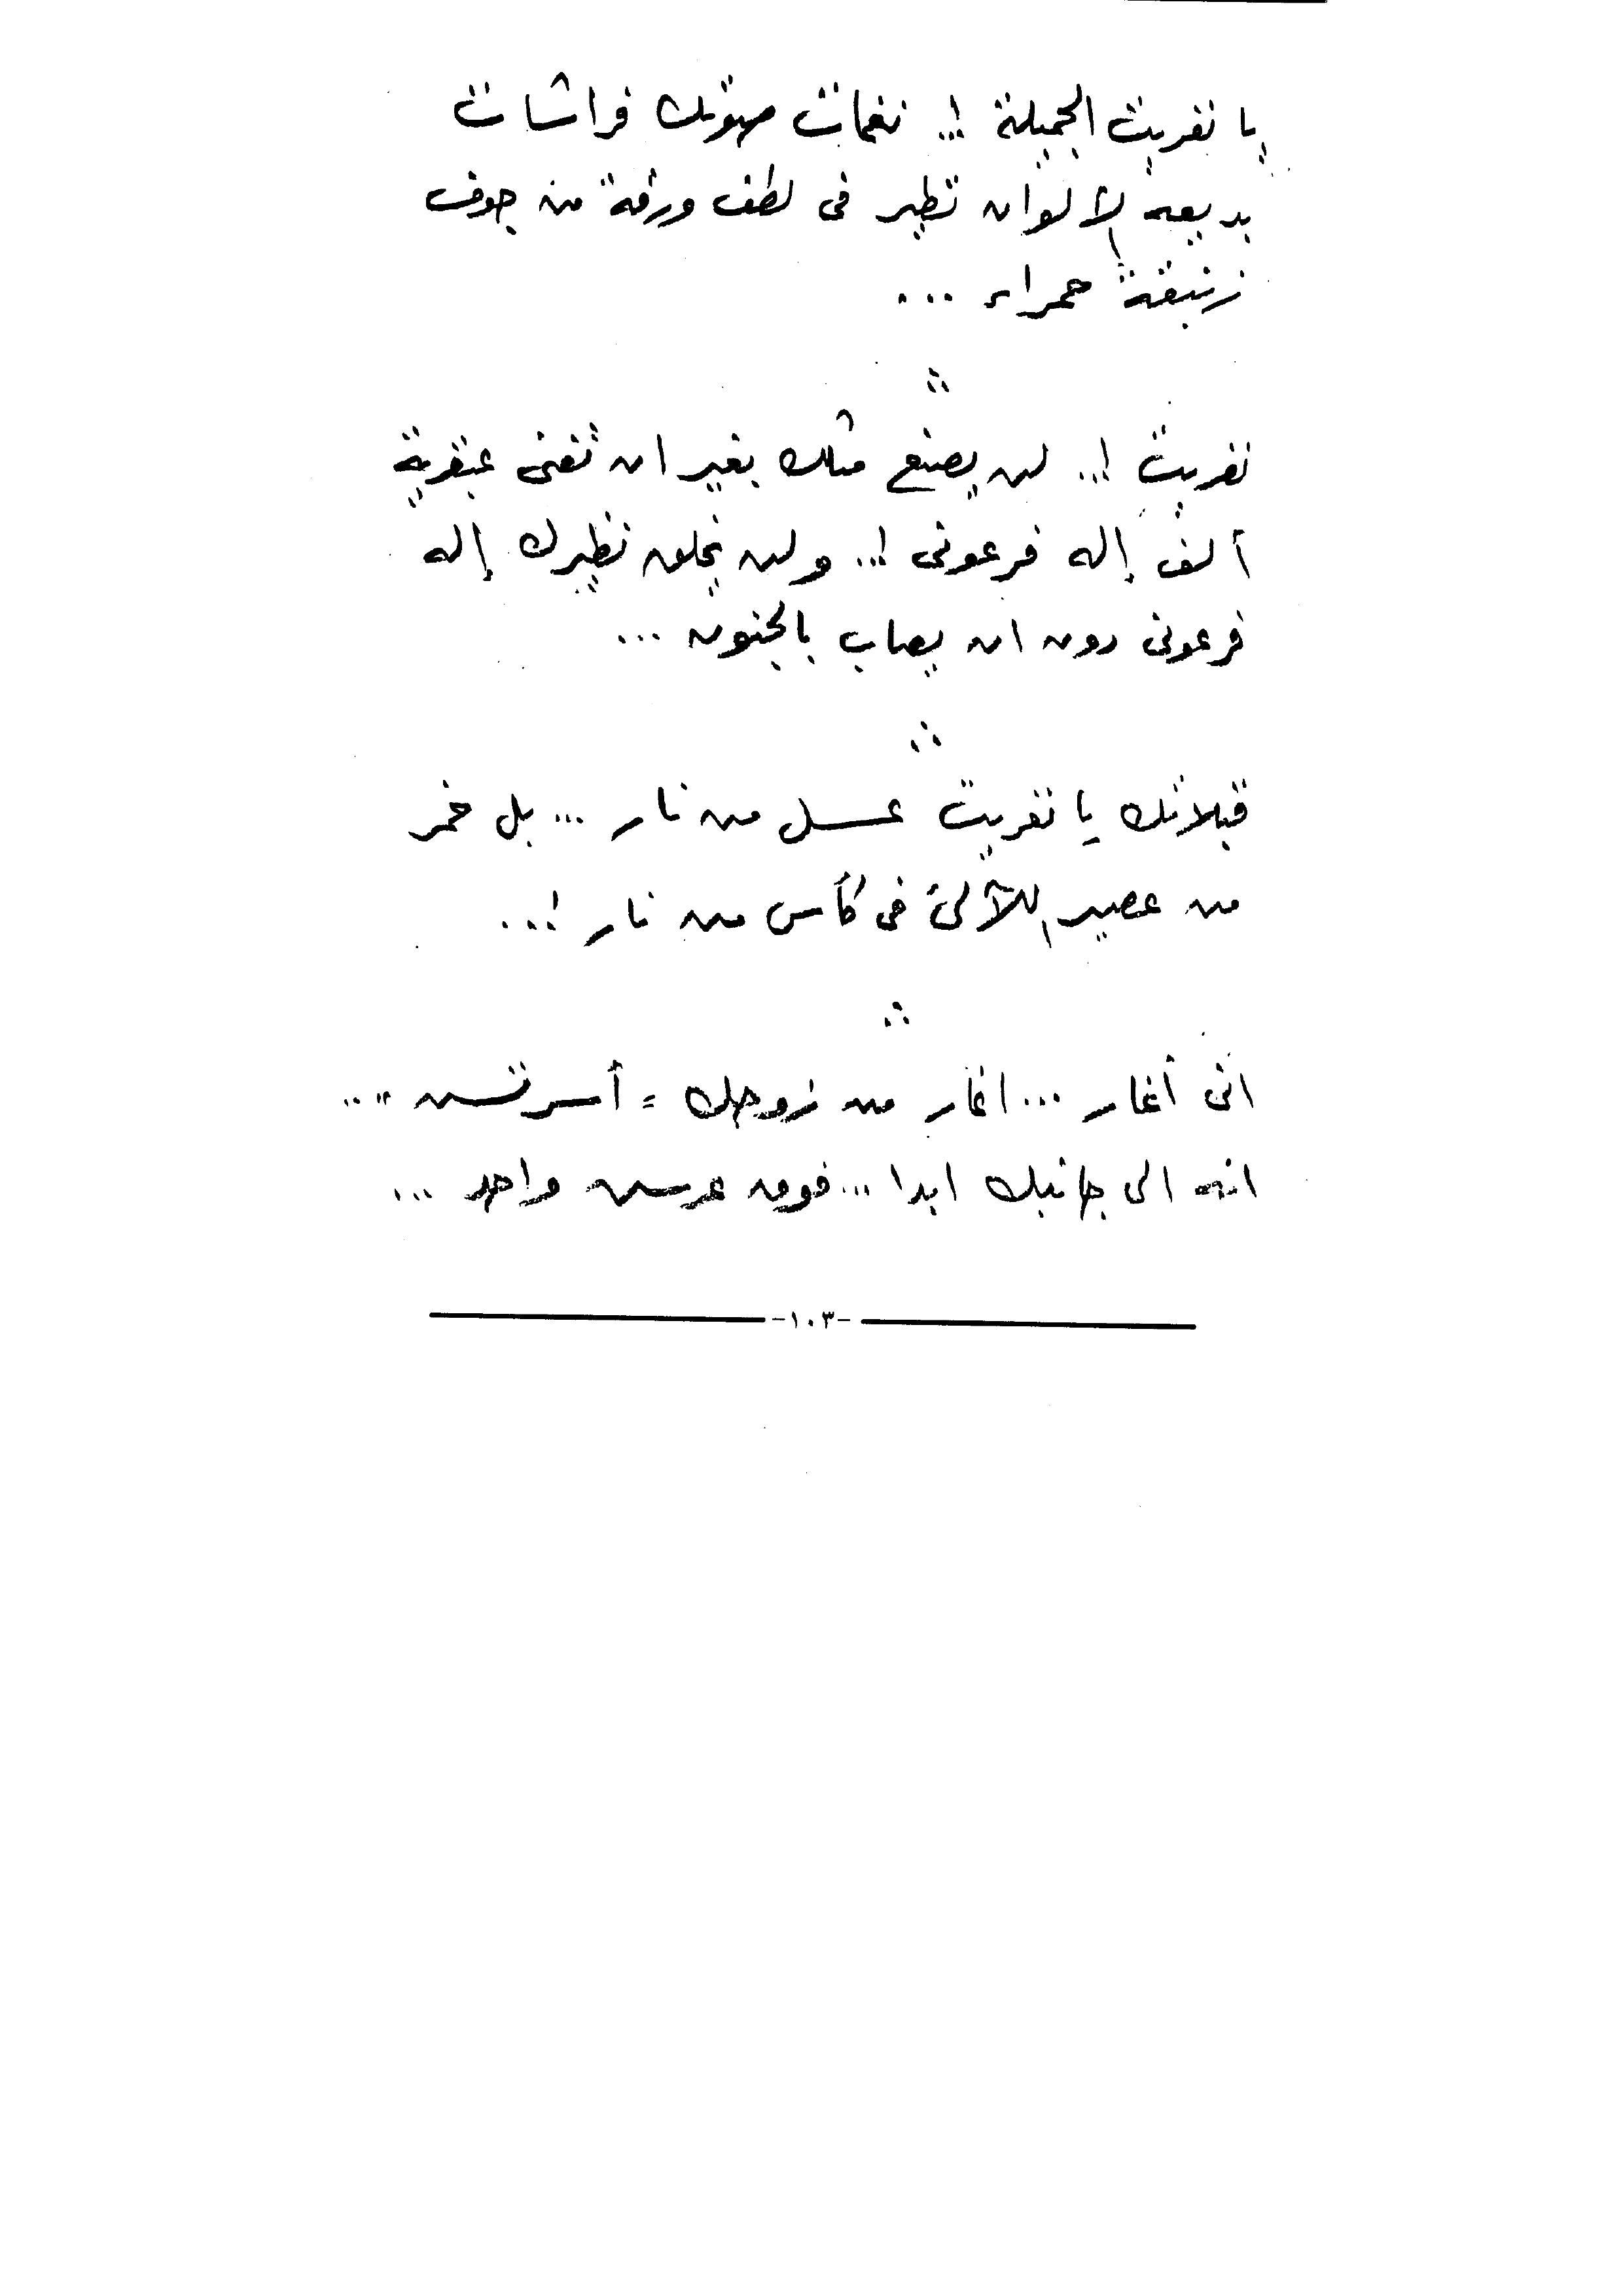 يا نفريت الجميلة !.. نغمات صوتك فراشات
بديعة الألوان تطير فى لطف ورقة من جوف
زنبقة حمراء ...
نفريت !.. لن يصنع مثلك بغير ان تفنى عبقرية
ألف إله فرعونى !.. ولن يخلق نظيرك إله
فرعونى دون ان يصاب بالجنون ...
قبلاتك يا نفريت عسل من نار ... بل خمر
من عصير اللآلئ فى كأس من نار !...
انى أغار ... اغار من زوجك "أسرتسن" ..
انه الى جانبك ابدا ... فوق عرس واحد ...
-١٠٣-